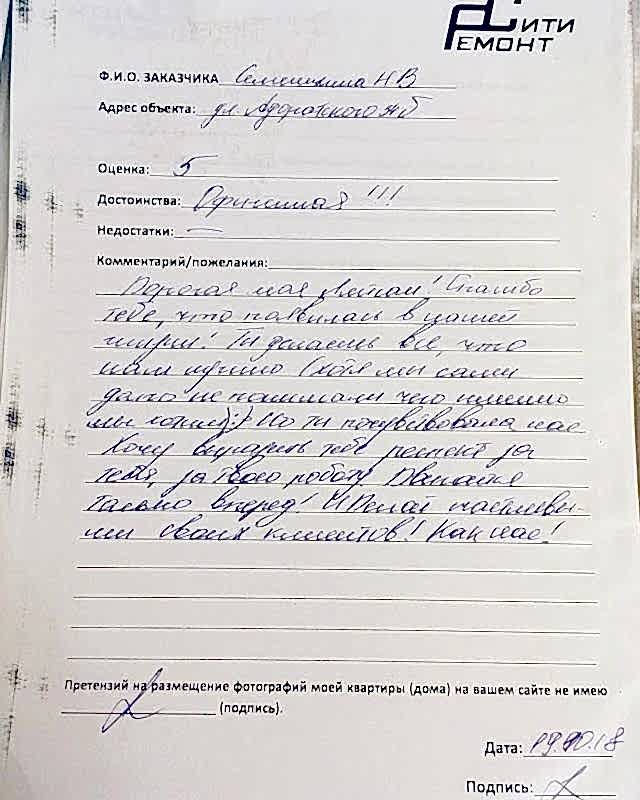 СИТИ
РЕМОНТ
Ф.И.О. ЗАКАЗЧИКА Семенихина НВ
Адрес объекта: ул. Адоратского
Оценка: 5
Достоинства: !!!
Недостатки: —
Комментарий/пожелания:
Дорогая моя ! Спасибо
тебе, что появилась в нашей
жизни! Ты делаешь все, что
нам нужно (хотя мы сами
даже не понимали чего именно
мы хотим):) Но ты почувствовала нас
Хочу выразить тебе респект за
тебя, за твою работу. Двигайся
только вперед! И делай счастливы-
ми своих клиентов! Как нас!
Претензий на размещение фотографий моей квартиры (дома) на вашем сайте не имею
(подпись).
Дата: 19.10.18
Подпись: